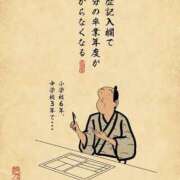 歴記入欄で
分の卒業年度が
からなくなる
小学校6年、
中学校3年で…